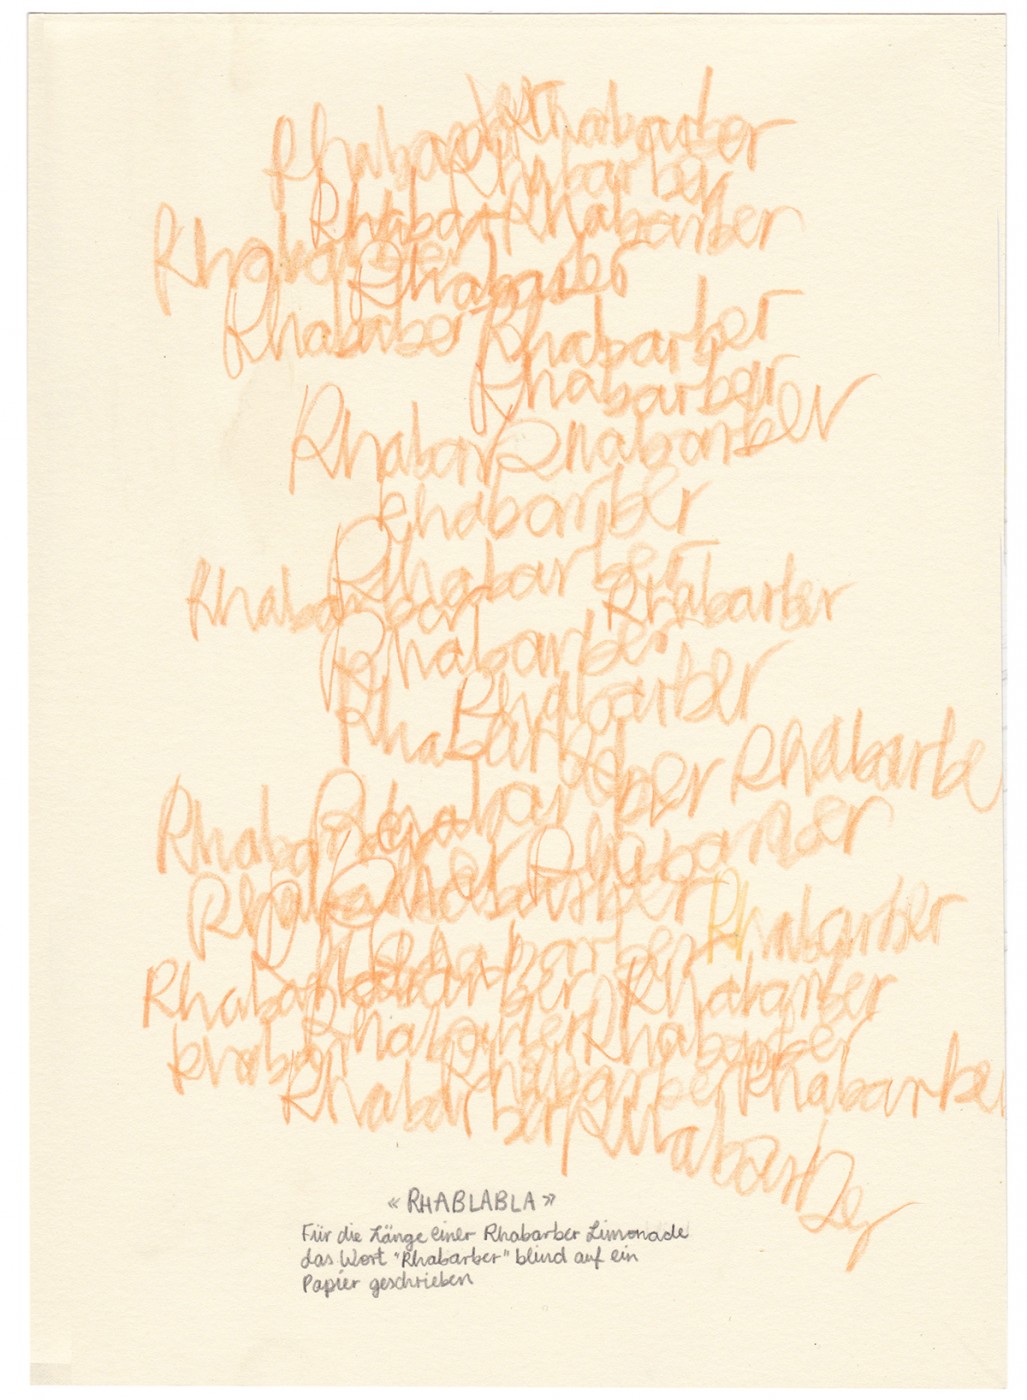 Rhabarber Rhabarber
Rhabarber
Rhabar Rhabarber
Rhabarber Rhabarber
Rhabarber Rhabarber
Rhabarber
Rhabar Rhabarber
Rhabarber
Rhabarber
Rhabarbar Rhabarber
Rhabarber
Rhabarber
Rhabarber
ber Rhabarbe
Rhabar Rhabar
Rhabarber
Rhabarber Rhabarber
Rhabarber
Rhabarber Rhabarber
Rhabarber Rhabarber
Rhabar Rhabarber Rhabarber
Rhabarber Rhabarber
« RHABLABLA »
Für die Länge einer Rhabarber Limonade
das Wort "Rhabarber" blind auf ein
Papier geschrieben